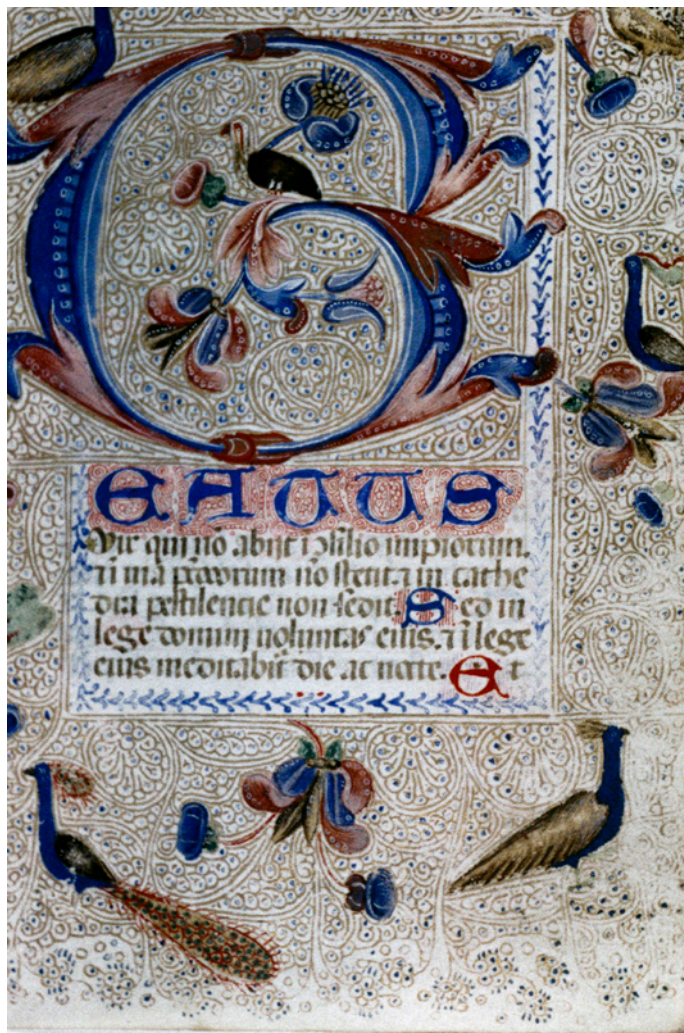 BEATUS
Vir qui nō abijt ī ɔsilio impiorum.
⁊ in uia peccatorum nō stetit. ⁊ in cathe
dra pestilencie non sedit. Sed in
lege domini uoluntas eius. ⁊ ī lege
eius meditabit̄ die ac nocte. Et